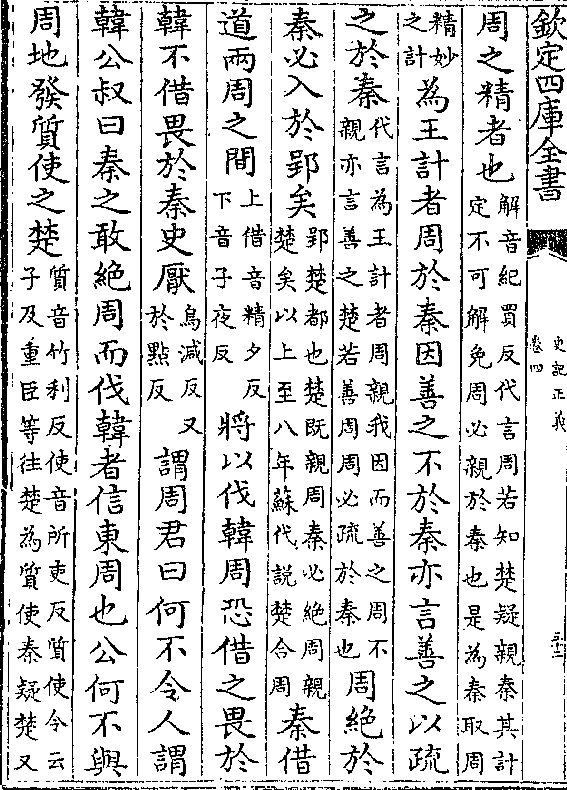 欽定四庫全書
史記正義
卷四
三十二
周之精者也解音紀買反代言周若知楚疑親秦其計定不可解免周必親於秦也是為秦取周
精妙之計為王計者周於秦因善之不於秦亦言善之以疏
之於秦代言為王計者周親我因而善之周不親亦言善之楚若善周周必疏於秦也周絕於
秦必入於郢矣郢楚都也楚既親周秦必絕周親楚矣以上至八年蘇代說楚合周秦借
道兩周之間上借音精夕反下音子夜反將以伐韓周恐借之畏於
韓不借畏於秦史厭烏減反又於點反謂周君曰何不令人謂
韓公叔曰秦之敢絕周而伐韓者信東周也公何不與
周地發質使之楚質音竹利反使音所吏反質使令云子及重臣等往楚為質使秦疑楚又